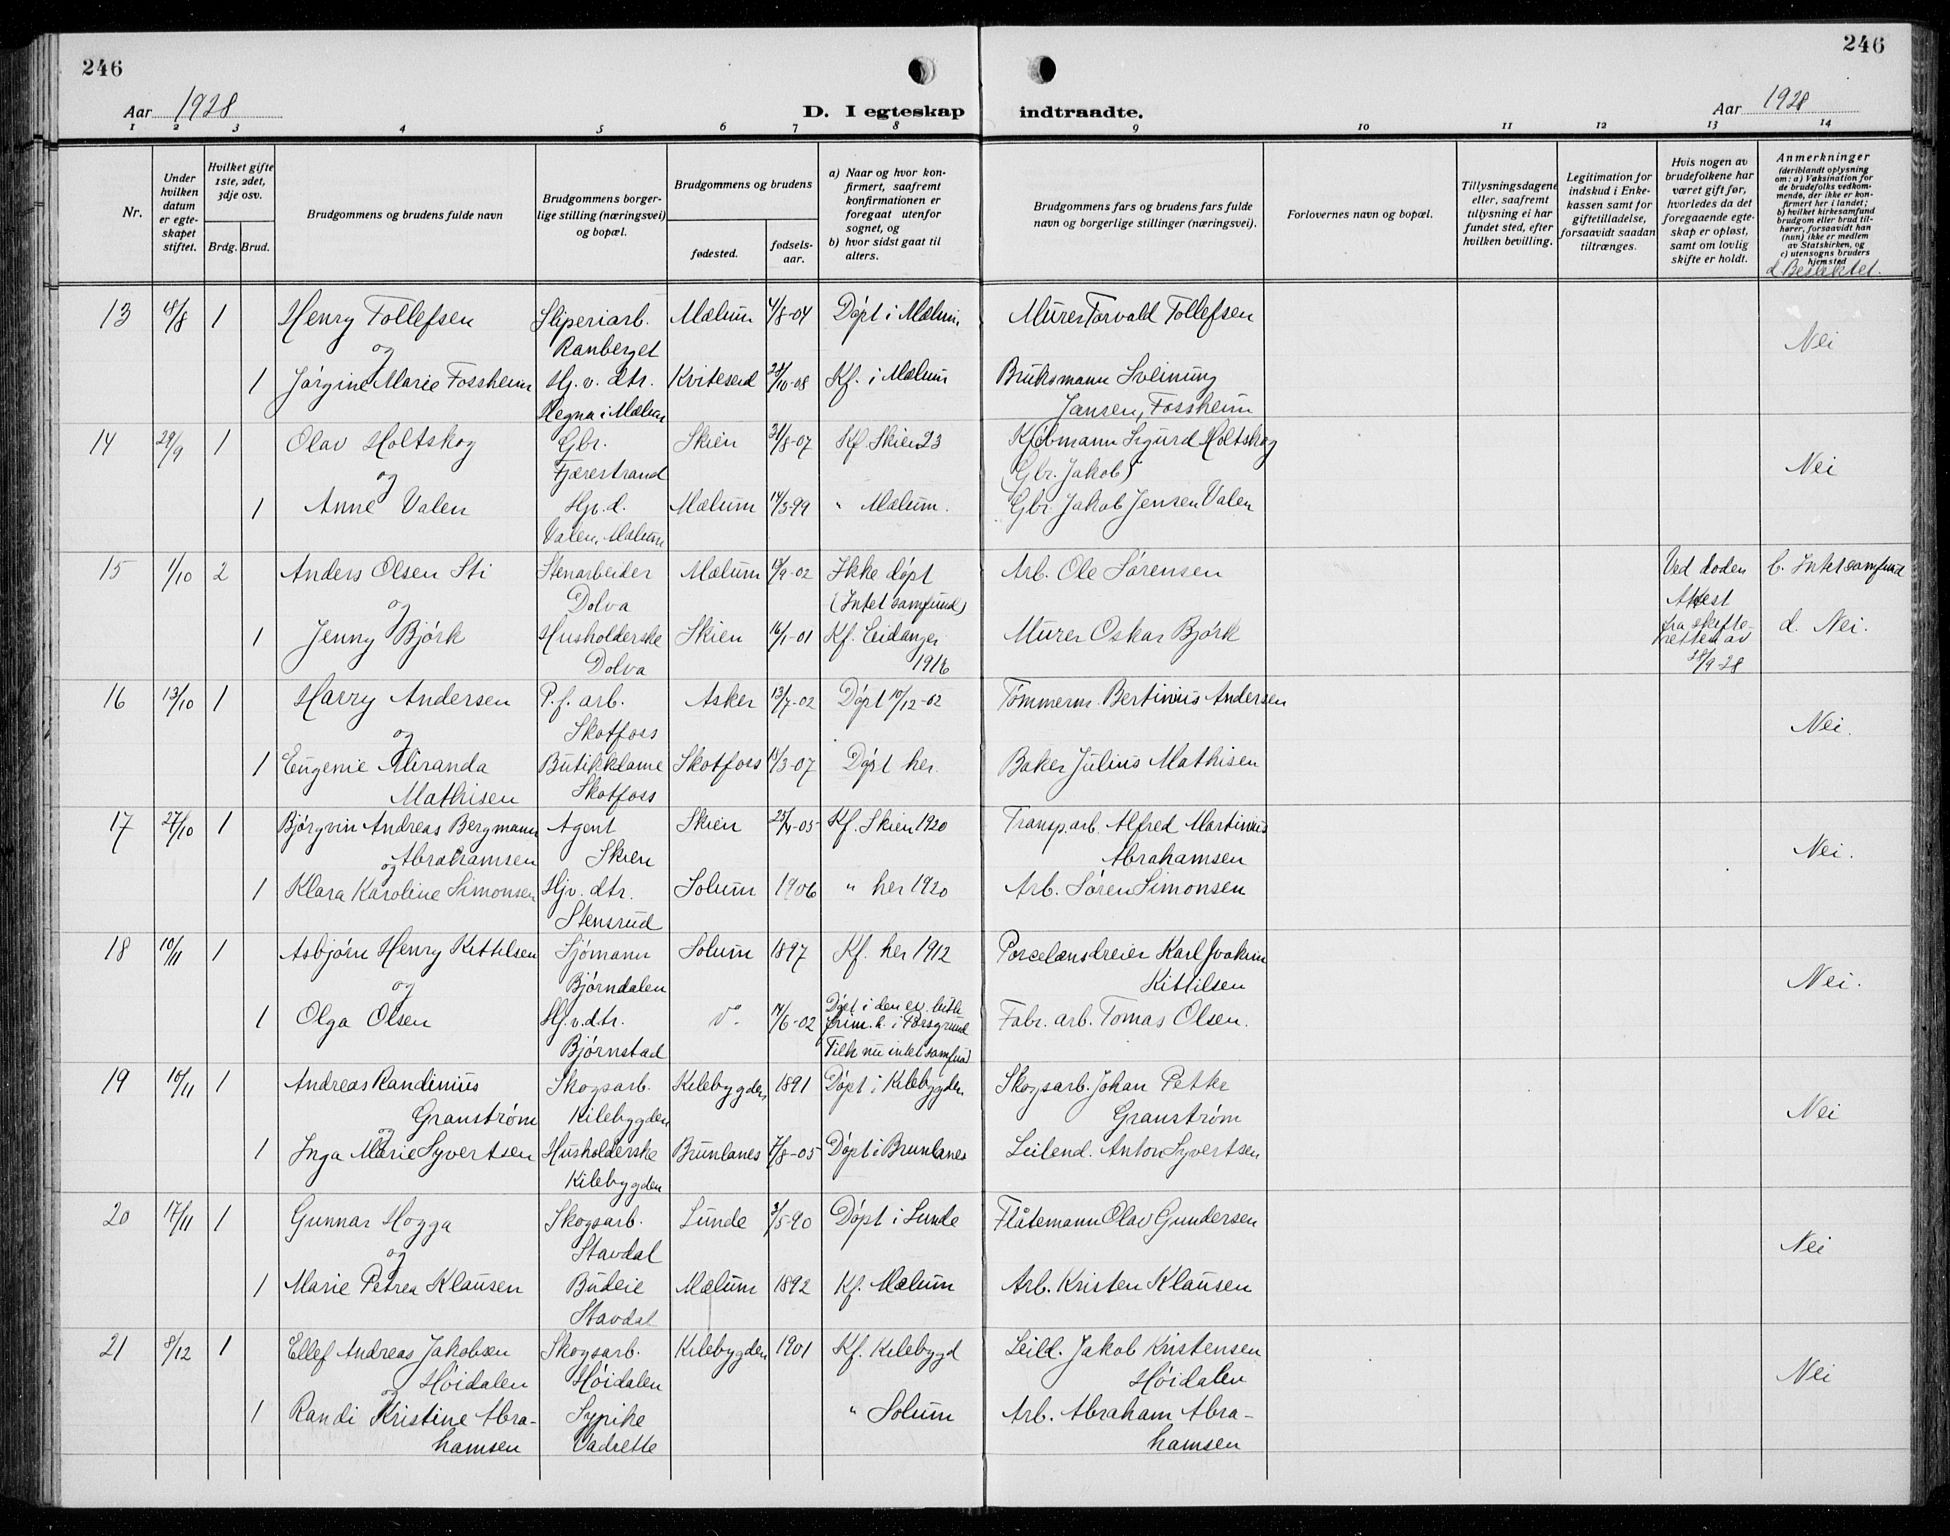 246
246
Aar 1928
D. I egteskap indtraadte.
Aar 1928
1 2 3 4 5 6 7 8 9 10 11 12 13 14
Nr.
Under hvilken datum er egteskapet stiftet.
Hvilket gifte 1ste, 2det, 3dje osv.
Brdg. Brud.
Brudgommens og brudens fulde navn
Brudgommens borgerlige stilling (næringsvei) og bopæl.
Brudgommens og brudens
fødested.
fødselsaar.
a) Naar og hvor konfirmert, saafremt konfirmationen er foregaat utenfor sognet, og
b) hvor sidst gaat til alters.
Brudgommens fars og brudens fars fulde navn og borgerlige stillinger (næringsvei).
Forlovernes navn og bopæl.
Tillysningsdagene eller, saafremt tillysning ei har fundet sted, efter hvilken bevilling.
Legitimation for indskud i Enkekassen samt for giftetilladelse, forsaavidt saadan tiltrænges.
Hvis nogen av brudefolkene har været gift før, hvorledes da det foregaaende egteskap er opløst, samt om lovlig skifte er holdt.
Anmerkninger (deriblandt oplysning om: a) Vaksination for de brudefolks vedkommende, der ikke er konfirmert her i landet; b) hvilket kirkesamfund brudgom eller brud tilhører, forsaavidt han (hun) ikke er medlem av Statskirken, og c) utensogns bruders hjemsted
d Beslektet.
13 18/8 1 Henry Tollefsen Sliperiarb. Mælum 4/8-04 Døpt i Mælum. Murer Torvald Tollefsen
og Ranberget Nei
1 Jørgine Marie Fossheim Hj. v. dtr. Kviteseid 28/10-08 Kf. i Mælum Bruksmann Sveinung
Regna i Mælum Jansen, Fossheim
14 29/9 1 Olav Holtskog Gbr. Skien 31/8-07 Kf. Skien 23 Kjøbmann Sigurd Holtskog
og Fjærestrand (Gbr. Jakob) Nei
1 Anne Valen Hjv. d. Mælum 14/3-99 " Mælum. Gbr. Jakob Jensen Valen
Valen, Mælum
15 1/10 2 Anders Olsen Sti Stenarbeider Mælum 18/9-02 Ikke døpt Arb. Ole Sørensen Ved døden b. Intet samfund
og Dolva (Intet samfund) Attest
1 Jenny Bjørk Husholderske Skien 16/1-01 Kf. Eidanger Murer Oskar Bjørk fra skifteretten av d. Nei.
Dolva 1916 28/9-28
16 13/10 1 Harry Andersen P. f. arb. Asker 13/7-02 Døpt 10/12-02 Tømmerm. Bertinius Andersen
og Skotfoss Nei.
1 Eugenie Miranda Butikkdame Skotfoss 15/3-07 Døpt her. Baker Julius Mathisen
Mathisen Skotfoss
17 27/10 1 Bjørgvin Andreas Bergmann Agent Skien 25/4-05 Kf. Skien 1920 Transp.arb. Alfred Martinius
og Abrahamsen Skien Abrahamsen Nei.
1 Klara Karoline Simonsen Hjv. dtr. Solum 1906 " her 1920 Arb. Søren Simonsen
Stensrud
18 10/11 1 Asbjørn Henry Kittilsen Sjømann Solum 1897 Kf. her 1912 Porcelænsdreier Karl Joakim
og Bjørndalen Kittilsen Nei.
1 Olga Olsen Hj. v. dtr. 14/6-02 Døpt i den ev. luth. Fabr. arb. Tomas Olsen.
Bjørnstad frim. k. i Porsgrund
Tilh. nu intet samfund
19 10/11 1 Andreas Randinius Skogsarb. Kilebygden 1891 Døpt i Kilebygden Skogsarb. Johan Petter
Granstrøm Kilebygden Granstrøm Nei
og
1 Inga Marie Syvertsen Husholderske Brunlanes 7/8-05 Døpt i Brunlanes Leilend. Anton Syvertsen
Kilebygden
20 17/11 1 Gunnar Hogga Skogsarb. Lunde 3/5-90 Døpt i Lunde Flåtemann Olav Gundersen
og Stavdal Nei
1 Marie Petrea Klausen Budeie Mælum 1892 Kf. Mælum Arb. Kristen Klausen
Stavdal
21 8/12 1 Ellef Andreas Jakobsen Skogsarb. Kilebygden 1901 Kf. Kilebygd Leild. Jakob Kristensen
og Høidalen Høidalen Høidalen Nei
1 Randi Kristine Abra- Sypike " Solum Arb. Abraham Abra-
hamsen Vadrette hamsen